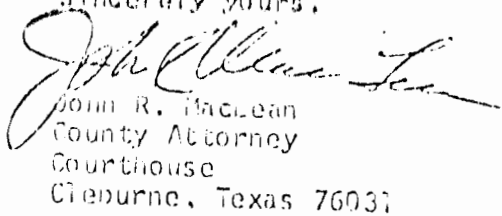 Sincerely yours,
John R. MacLean
County Attorney
Courthouse
Cleburne, Texas 76031